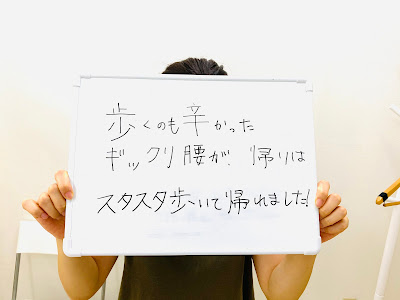 歩くのも辛かった
ギックリ腰が、帰りは
スタスタ歩いて帰れました!